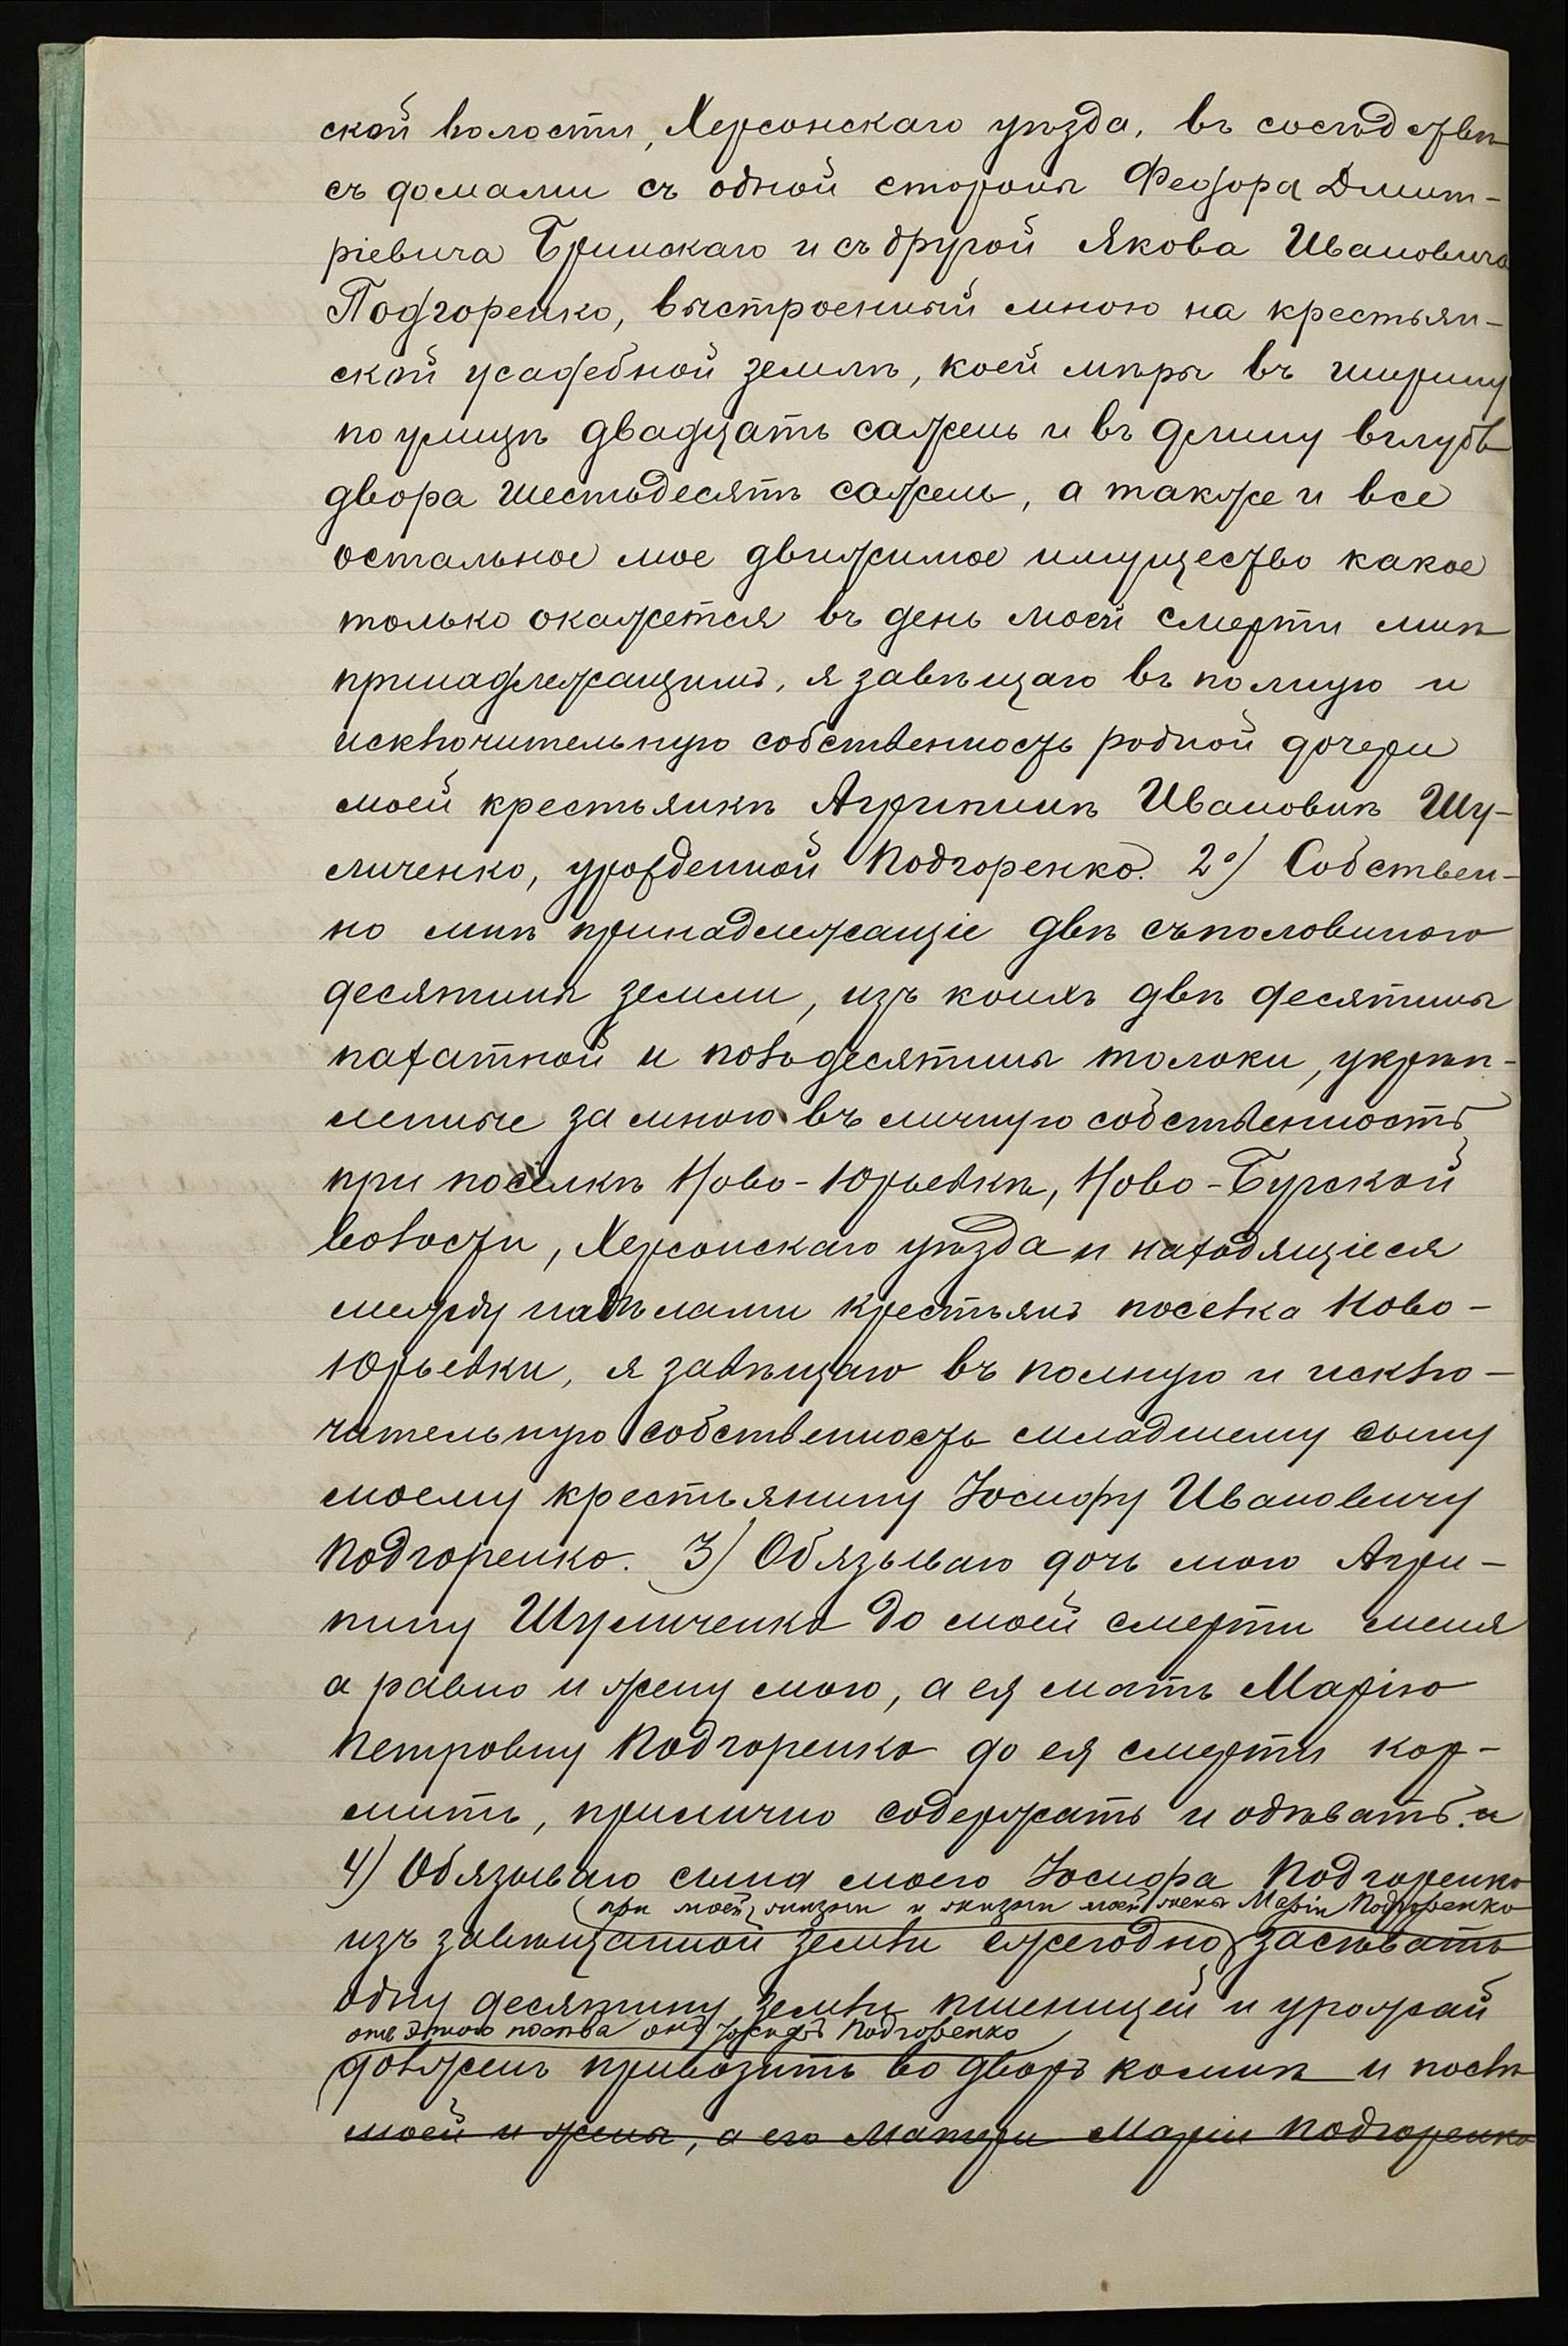 ской волости, Херсонскаго уѣзда, въ сосѣдствѣ
съ домами съ одной стороны Феодора Дмит-
ріевича Бринскаго и съ другой Якова Ивановича
Подгоренко, выстроенный мною на крестьян-
ской усадебной землѣ, коей мѣры въ ширину
по улицѣ двадцать сажень и въ длину вглубь
двора шестьдесятъ сажень, а также и все
остальное мое движимое имущество какое
только окажется въ день моей смерти мнѣ
принадлежащимъ, я завѣщаю въ полную и
исключительную собственность родной дочери
моей крестьянкѣ Агрипинѣ Ивановнѣ Шу-
личенко, урожденной Подгоренко. 2º) Собствен-
но мнѣ принадлежащіе двѣ съ половиною
десятины земли, изъ коихъ двѣ десятины
пахатной и полъ десятины толоки, укрѣп-
леные за мною въ личную собственность
при поселкѣ Ново-Юрьевкѣ, Ново-Бугской
волости, Херсонскаго уѣзда и находящіеся
между надѣлами крестьянъ поселка Ново-
Юрьевки, я завѣщаю въ полную и исклю-
чительную собственность младшему сыну
моему крестьянину Іосифу Ивановичу
Подгоренко. 3) Обязываю дочь мою Агри-
пину Шуличенко до моей смерти меня
а равно и жену мою, а ея мать Марію
Петровну Подгоренко до ея смерти кор-
мить, прилично содержать и одѣвать. и
4) Обязываю сына моего Іосифа Подгоренко
при моей жизни и жизни моей жены Маріи Подгоренко
изъ завѣщанной земли ежегодно засѣвать
одну десятину земли пшеницей и урожай
отъ этого посѣва онъ Іосифъ Подгоренко
долженъ привозить во дворъ ко мнѣ и послѣ
моей и жены, а его матери Маріи Подгоренко